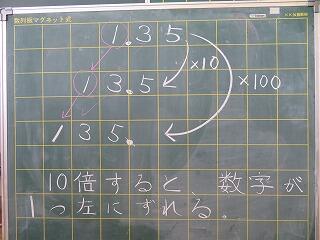 数列板マグネット式
1.35
×10
13.5
×100
135.
10倍すると、数字が
1つ左にずれる。